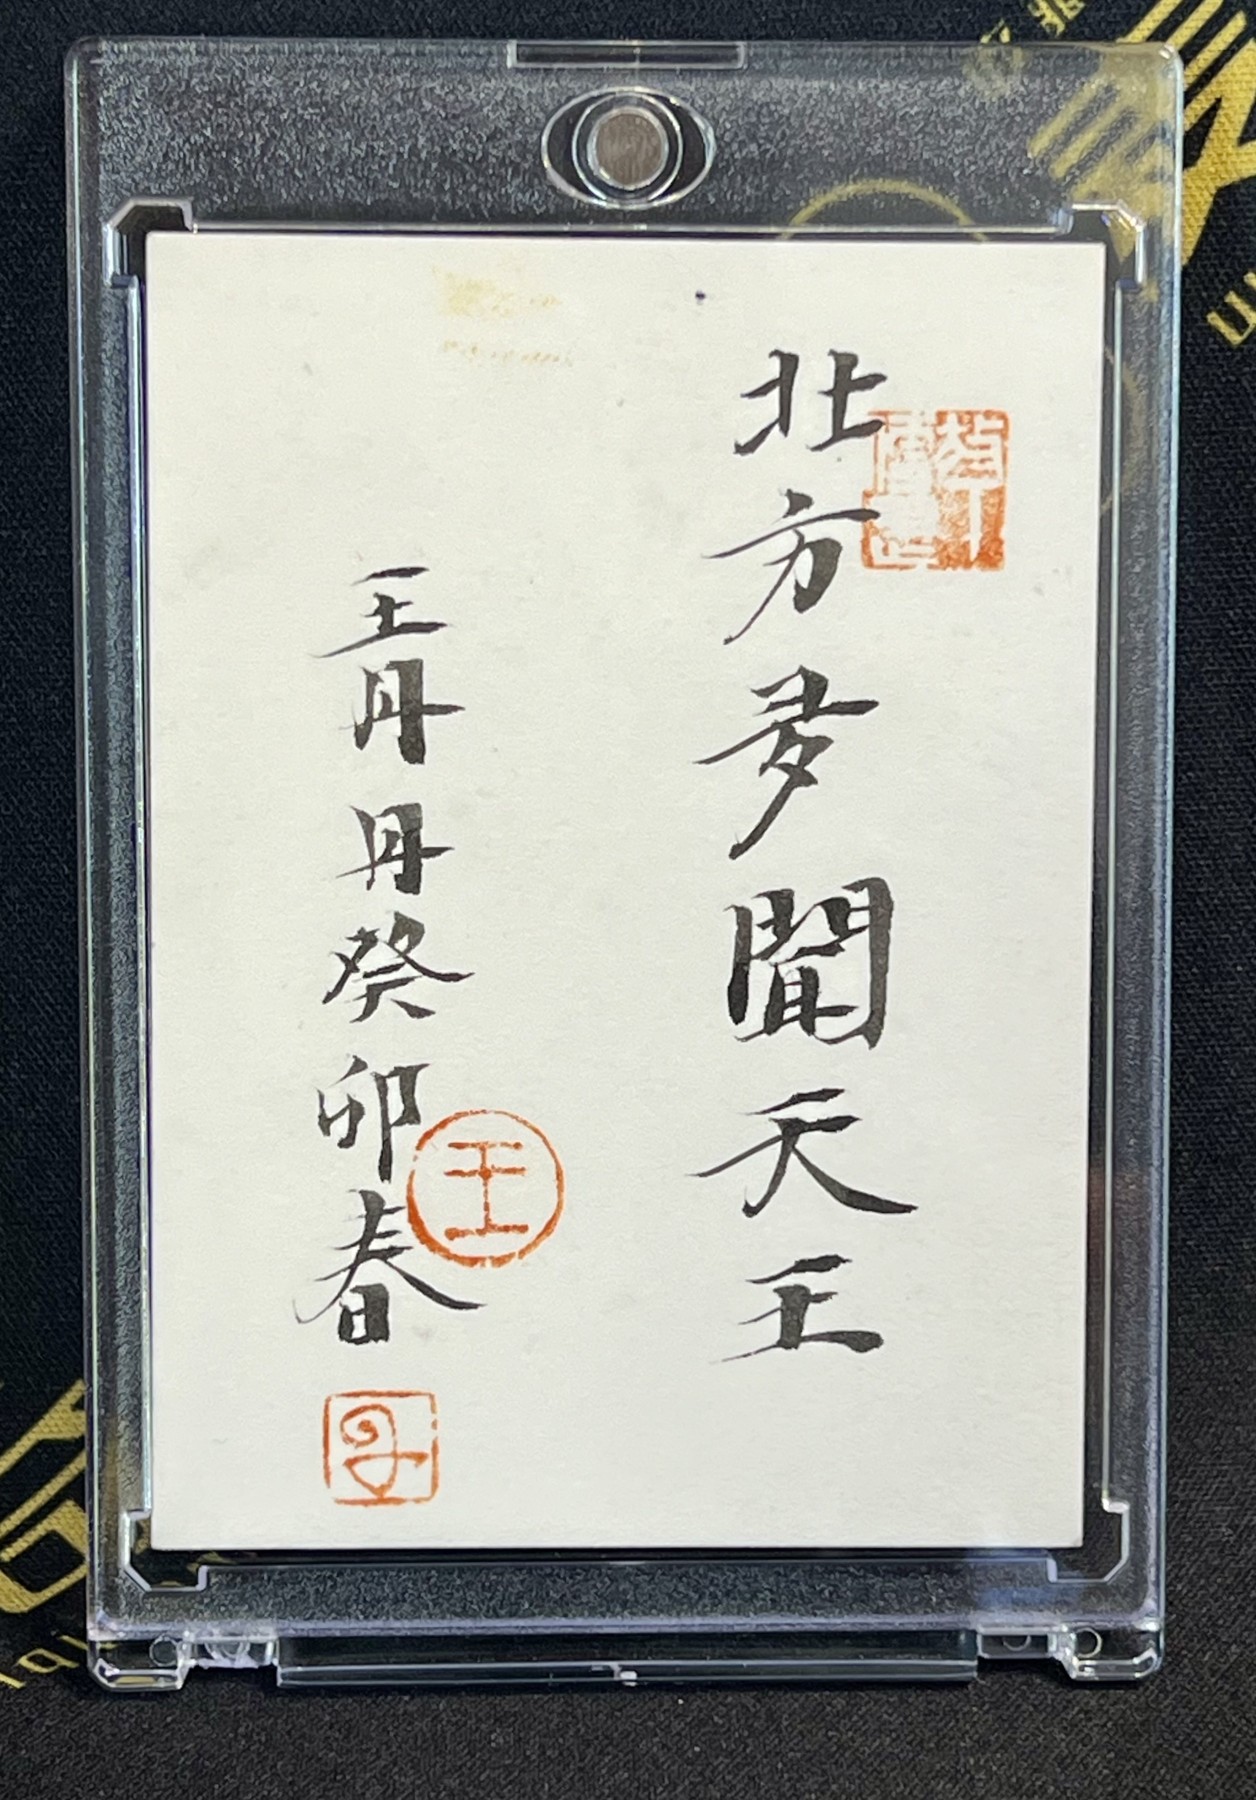 北方多聞天王
王丹丹癸卯春
王